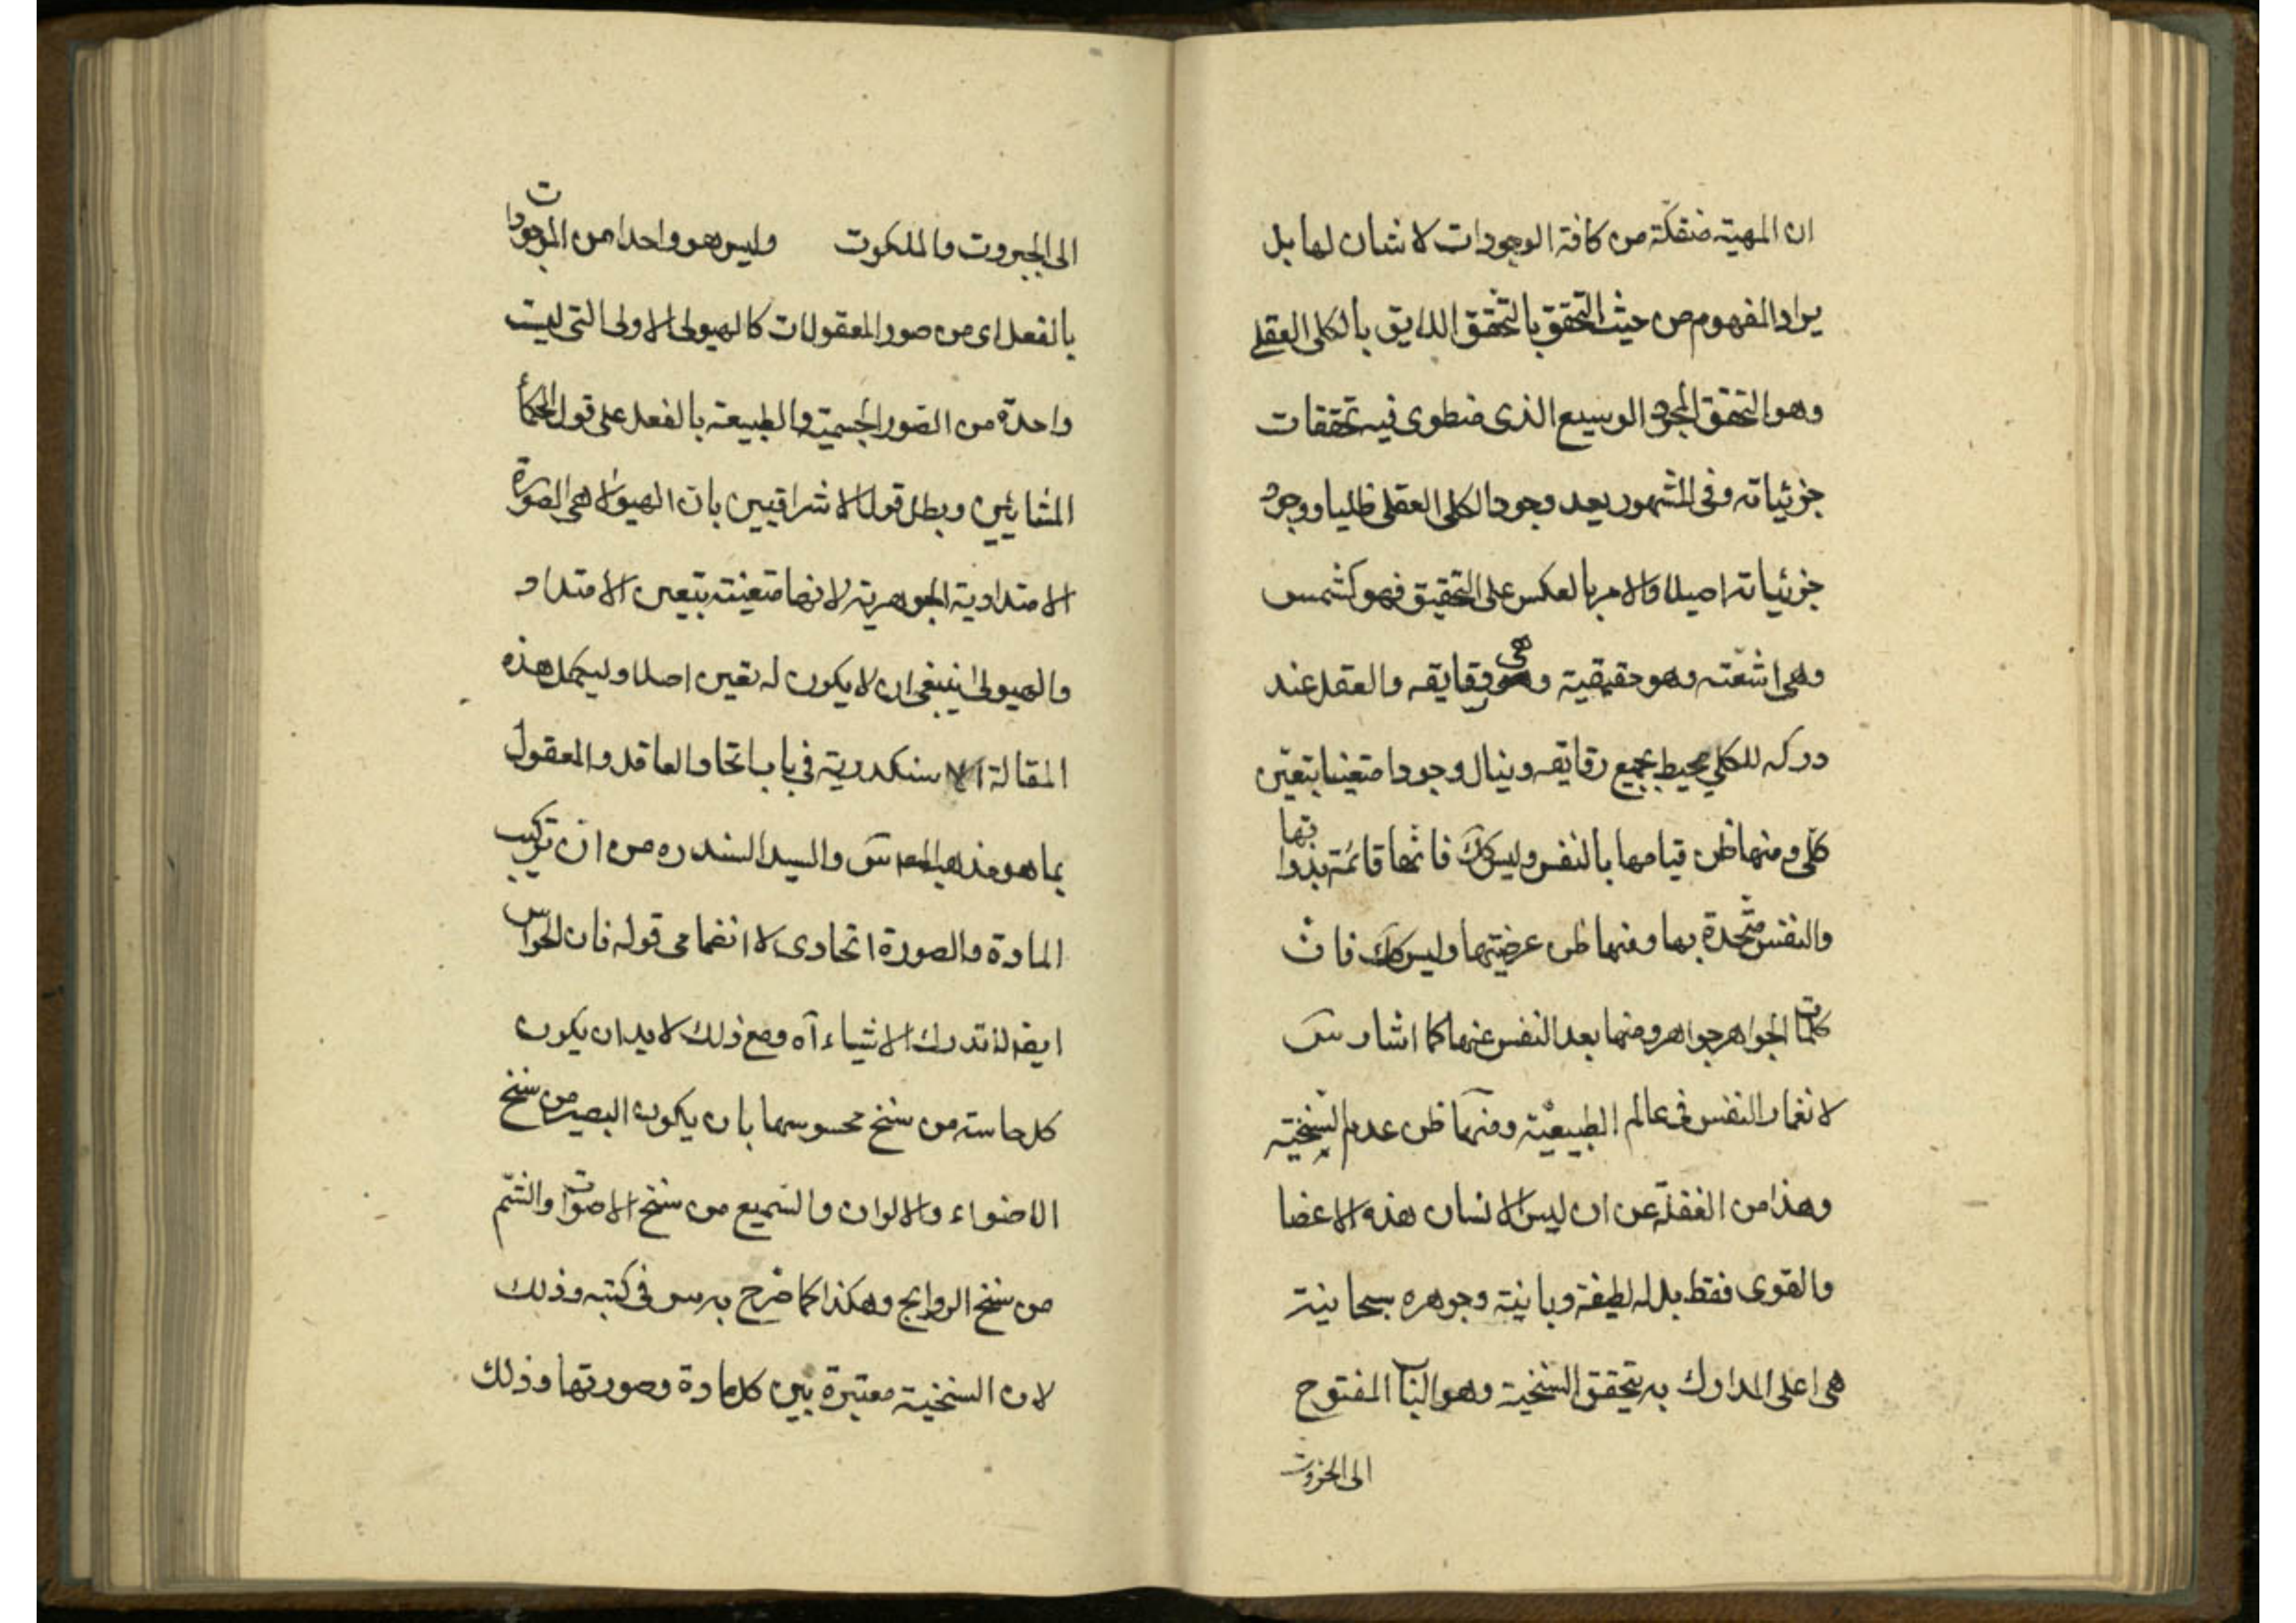 ان المهية منفكّة من كافة الوجودات لا شان لها بل
يراد المفهوم من حيث التحقق بالتحقق اللايق بالكلى العقلى
وهو التحقق المجرد الوسيع الذى منطوى فيه تحققات
جزئياته وفى المشهور يعد وجود الكلى العقلى ظليا ووجود
جزئياته اصيلا والامر بالعكس على التحقيق فهو كشمس
وهى اشعّته وهو حقيقية وهى رقايقه والعقل عند
دركه للكلي محيط بجميع رقايقه وينال وجودا متعينا بتعيّن
كلّى ومنها ظن قيامها بالنفس وليس كك فانها قائمة بذواتها
والنفس متّحدة بها ومنها ظن عرضيتها وليس كك فان
كليات الجواهر جواهر ومنها بعد النفس عنها كما اشار س
لانغمار النفس فى عالم الطبيعيّة ومنها ظن عدم السّنخية
وهذا من الغفلة عن ان ليس الانسان هذه الاعضا
والقوى فقط بل له لطيفة ربانية وجوهره سبحانية
هى اعلى المدارك به يتحقق السنخية وهو الباب المفتوح
الى الجبروت
الى الجبروت والملكوت وليس هو واحدا من الموجودات
بالفعل اى من صور المعقولات كالهيولى الاولى التى ليست
واحدة من الصور الجسمية والطبيعة بالفعل على قول الحكمأ
المشائين ويطل قول الاشراقيين بان الهيولا هى الصورة
الامتدادية الجوهرية لانها متعينة بتعين الامتداد
والهيولى ينبغى ان لا يكون له تعين اصلا وليحمل هذه
المقالة الاسكندرية فى باب اتحاد العاقل والمعقول
بما هو مذهب س والسيد السند ره من ان تركيب
المادة والصورة اتحادى لا انضمامى قوله فان الحواس
ايضا تدرك الاشياء آه ومع ذلك لا بد ان يكون
كل حاسته من سنخ محسوسها بان يكون البصير من سنخ
الاضواء والالوان والسّميع من سنخ الاصوات والشّم
من سنخ الروايح وهكذا كما صّرح به س فى كتبه وذلك
لان السنخية معتبرة بين كل مادة وصورتها وذلك